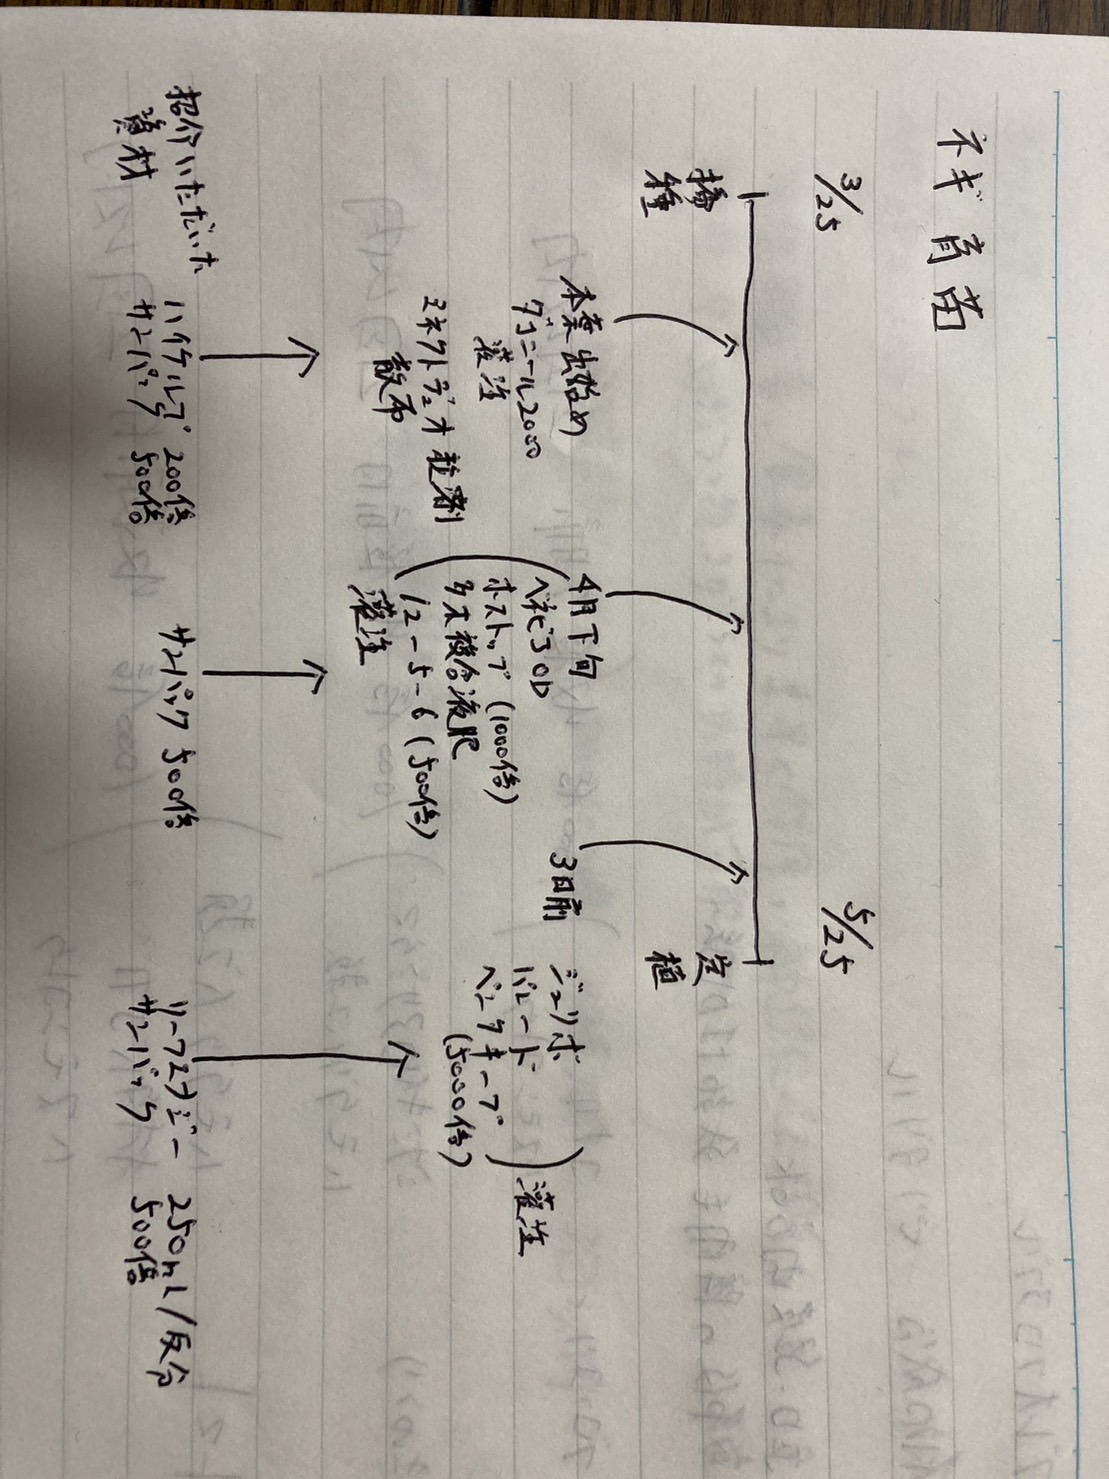 ネギ育苗
3/25
5/25
播種
定植
本葉出始め
ダコニール2000
灌注
ミネクトデュオ粒剤
散布
4月下旬
ベネビアOD
ホストップ (1000倍)
多木複合液肥
12-5-6 (500倍)
灌注
3日前
ジュリボ
パレード
ベンタキープ
(5000倍)
灌注
紹介いただいた
資材
ハイケルプ 200倍
サンパック 500倍
サンパック 500倍
リーフエナジー 250mL/反分
サンパック 500倍